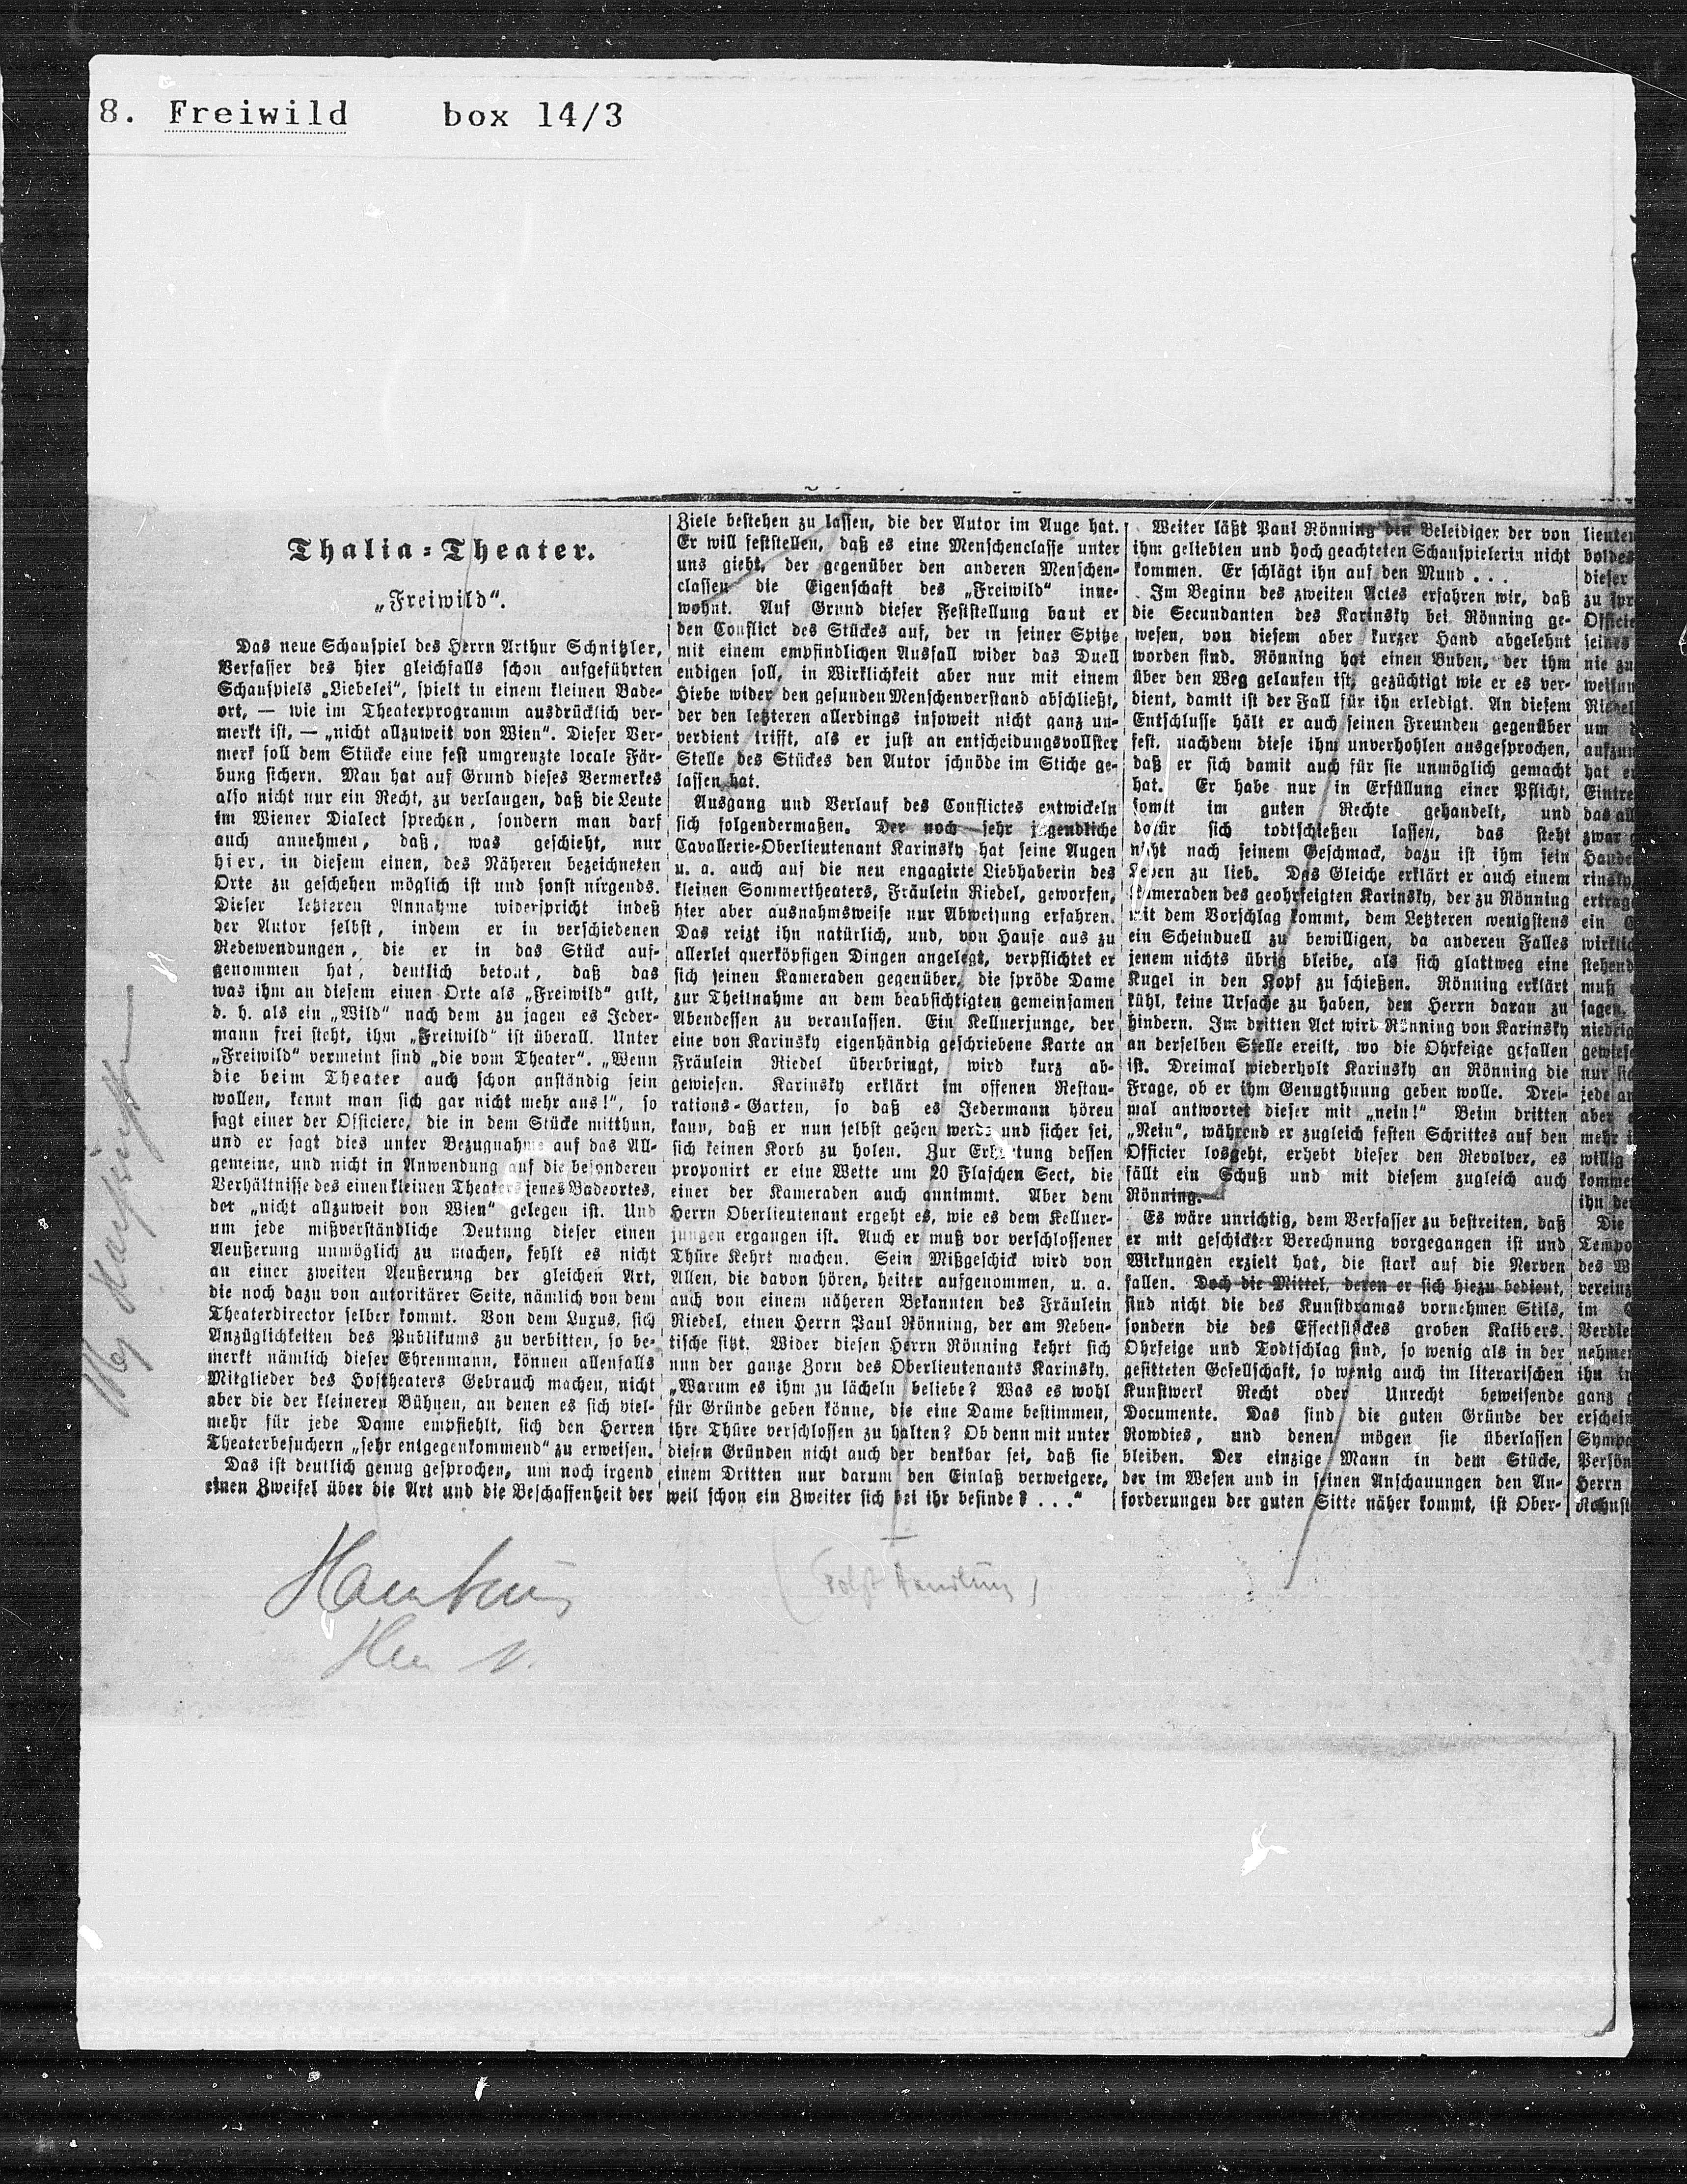 8. Freiwild box 14/3
Thalia-Theater.
„Freiwild“.
Das neue Schauspiel des Herrn Arthur Schnitzler,
Verfasser des hier gleichfalls schon aufgeführten
Schauspiels „Liebelei“, spielt in einem kleinen Bade-
ort, — wie im Theaterprogramm ausdrücklich ver-
merkt ist, — „nicht allzuweit von Wien“. Dieser Ver-
merk soll dem Stücke eine fest umgrenzte locale Fär-
bung sichern. Man hat auf Grund dieses Vermerkes
also nicht nur ein Recht, zu verlangen, daß die Leute
im Wiener Dialect sprechen, sondern man darf
auch annehmen, daß, was geschieht, nur
hier, in diesem einen, des Näheren bezeichneten
Orte zu geschehen möglich ist und sonst nirgends.
Dieser letzteren Annahme widerspricht indeß
der Autor selbst, indem er in verschiedenen
Redewendungen, die er in das Stück auf-
genommen hat, deutlich betont, daß das
was ihm an diesem einen Orte als „Freiwild“ gilt,
d. h. als ein „Wild“ nach dem zu jagen es Jeder-
mann frei steht, ihm „Freiwild“ ist überall. Unter
„Freiwild“ vermeint sind „die vom Theater“. „Wenn
die beim Theater auch schon anständig sein
wollen, kennt man sich gar nicht mehr aus!“, so
sagt einer der Officiere, die in dem Stücke mitthun,
und er sagt dies unter Bezugnahme auf das All-
gemeine, und nicht in Anwendung auf die besonderen
Verhältnisse des einen kleinen Theaters jenes Badeortes,
der „nicht allzuweit von Wien“ gelegen ist. Und
um jede mißverständliche Deutung dieser einen
Aeußerung unmöglich zu machen, fehlt es nicht
an einer zweiten Aeußerung der gleichen Art,
die noch dazu von autoritärer Seite, nämlich von dem
Theaterdirector selber kommt. Von dem Luxus, sich
Anzüglichkeiten des Publikums zu verbitten, so be-
merkt nämlich dieser Ehrenmann, können allenfalls
Mitglieder des Hoftheaters Gebrauch machen, nicht
aber die der kleineren Bühnen, an denen es sich viel-
mehr für jede Dame empfiehlt, sich den Herren
Theaterbesuchern „sehr entgegenkommend“ zu erweisen.
Das ist deutlich genug gesprochen, um noch irgend
einen Zweifel über die Art und die Beschaffenheit der
Ziele bestehen zu lassen, die der Autor im Auge hat.
Er will feststellen, daß es eine Menschenclasse unter
uns giebt, der gegenüber den anderen Menschen-
classen die Eigenschaft des „Freiwild“ inne-
wohnt. Auf Grund dieser Feststellung baut er
den Conflict des Stückes auf, der in seiner Spitze
mit einem empfindlichen Ausfall wider das Duell
endigen soll, in Wirklichkeit aber nur mit einem
Hiebe wider den gesunden Menschenverstand abschließt,
der den letzteren allerdings insoweit nicht ganz un-
verdient trifft, als er just an entscheidungsvollster
Stelle des Stückes den Autor schnöde im Stiche ge-
lassen hat.
Ausgang und Verlauf des Conflictes entwickeln
sich folgendermaßen. Der noch sehr jugendliche
Cavallerie-Oberlieutenant Karinsky hat seine Augen
u. a. auch auf die neu engagirte Liebhaberin des
kleinen Sommertheaters, Fräulein Riedel, geworfen,
hier aber ausnahmsweise nur Abweisung erfahren.
Das reizt ihn natürlich, und, von Hause aus zu
allerlei querköpfigen Dingen angelegt, verpflichtet er
sich seinen Kameraden gegenüber, die spröde Dame
zur Theilnahme an dem beabsichtigten gemeinsamen
Abendessen zu veranlassen. Ein Kellnerjunge, der
eine von Karinsky eigenhändig geschriebene Karte an
Fräulein Riedel überbringt, wird kurz ab-
gewiesen. Karinsky erklärt im offenen Restau-
rations-Garten, so daß es Jedermann hören
kann, daß er nun selbst gehen werde und sicher sei,
sich keinen Korb zu holen. Zur Erhärtung dessen
proponirt er eine Wette um 20 Flaschen Sect, die
einer der Kameraden auch annimmt. Aber dem
Herrn Oberlieutenant ergeht es, wie es dem Kellner-
jungen ergangen ist. Auch er muß vor verschlossener
Thüre Kehrt machen. Sein Mißgeschick wird von
Allen, die davon hören, heiter aufgenommen, u. a.
auch von einem näheren Bekannten des Fräulein
Riedel, einen Herrn Paul Rönning, der am Neben-
tische sitzt. Wider diesen Herrn Rönning kehrt sich
nun der ganze Zorn des Oberlieutenants Karinsky.
„Warum es ihm zu lächeln beliebe? Was es wohl
für Gründe geben könne, die eine Dame bestimmen,
ihre Thüre verschlossen zu halten? Ob denn mit unter
diesen Gründen nicht auch der denkbar sei, daß sie
einem Dritten nur darum den Einlaß verweigere,
weil schon ein Zweiter sich bei ihr befinde? . . .“
Weiter läßt Paul Rönning den Beleidiger der von
ihm geliebten und hoch geachteten Schauspielerin nicht
kommen. Er schlägt ihn auf den Mund . . .
Im Beginn des zweiten Actes erfahren wir, daß
die Secundanten des Karinsky bei Rönning ge-
wesen, von diesem aber kurzer Hand abgelehnt
worden sind. Rönning hat einen Buben, der ihm
über den Weg gelaufen ist, gezüchtigt wie er es ver-
dient, damit ist der Fall für ihn erledigt. An diesem
Entschlusse hält er auch seinen Freunden gegenüber
fest, nachdem diese ihm unverhohlen ausgesprochen,
daß er sich damit auch für sie unmöglich gemacht
hat. Er habe nur in Erfüllung einer Pflicht,
somit im guten Rechte gehandelt, und
dafür sich todtschießen lassen, das steht
nicht nach seinem Geschmack, dazu ist ihm sein
Leben zu lieb. Das Gleiche erklärt er auch einem
Kameraden des geohrfeigten Karinsky, der zu Rönning
mit dem Vorschlag kommt, dem Letzteren wenigstens
ein Scheinduell zu bewilligen, da anderen Falles
jenem nichts übrig bleibe, als sich glattweg eine
Kugel in den Kopf zu schießen. Rönning erklärt
kühl, keine Ursache zu haben, den Herrn daran zu
hindern. Im dritten Act wird Rönning von Karinsky
an derselben Stelle ereilt, wo die Ohrfeige gefallen
ist. Dreimal wiederholt Karinsky an Rönning die
Frage, ob er ihm Genugthuung geben wolle. Drei-
mal antwortet dieser mit „nein!“ Beim dritten
„Nein“, während er zugleich festen Schrittes auf den
Officier losgeht, erhebt dieser den Revolver, es
fällt ein Schuß und mit diesem zugleich auch
Rönning.
Es wäre unrichtig, dem Verfasser zu bestreiten, daß
er mit geschickter Berechnung vorgegangen ist und
Wirkungen erzielt hat, die stark auf die Nerven
fallen. Doch die Mittel, deren er sich hiezu bedient,
sind nicht die des Kunstdramas vornehmen Stils,
sondern die des Effectstückes groben Kalibers.
Ohrfeige und Todtschlag sind, so wenig als in der
gesitteten Gesellschaft, so wenig auch im literarischen
Kunstwerk Recht oder Unrecht beweisende
Documente. Das sind die guten Gründe der
Rowdies, und denen mögen sie überlassen
bleiben. Der einzige Mann in dem Stücke,
der im Wesen und in seinen Anschauungen den An-
forderungen der guten Sitte näher kommt, ist Ober-
Hamburg